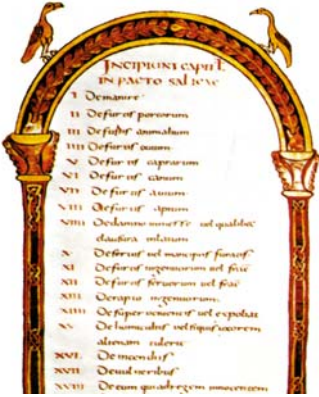 INCIPIUNT CAPITL
IN PACTO SALICAE
I De manire
II De furtis porcorum
III De furtis animalium
IIII De furtis ouium
V De furtis caprarum
VI De furtis canum
VII De furtis auium
VIII De furtis apium
VIIII De damno in messe uel qualibet
clausura inlatum
X De seruis uel mancipiis furatis
XI De furtis ingenuorum uel
XII De furtis seruorum uel
XIII De rapto ingenuorum
XIIII De superuenientis uel expoliat
XV De homicidiis vel si quis uxorem
alienam tulerit
XVI. De incendiis
XVII De uulneribus
XVIII De eum qui ad regem innocentem